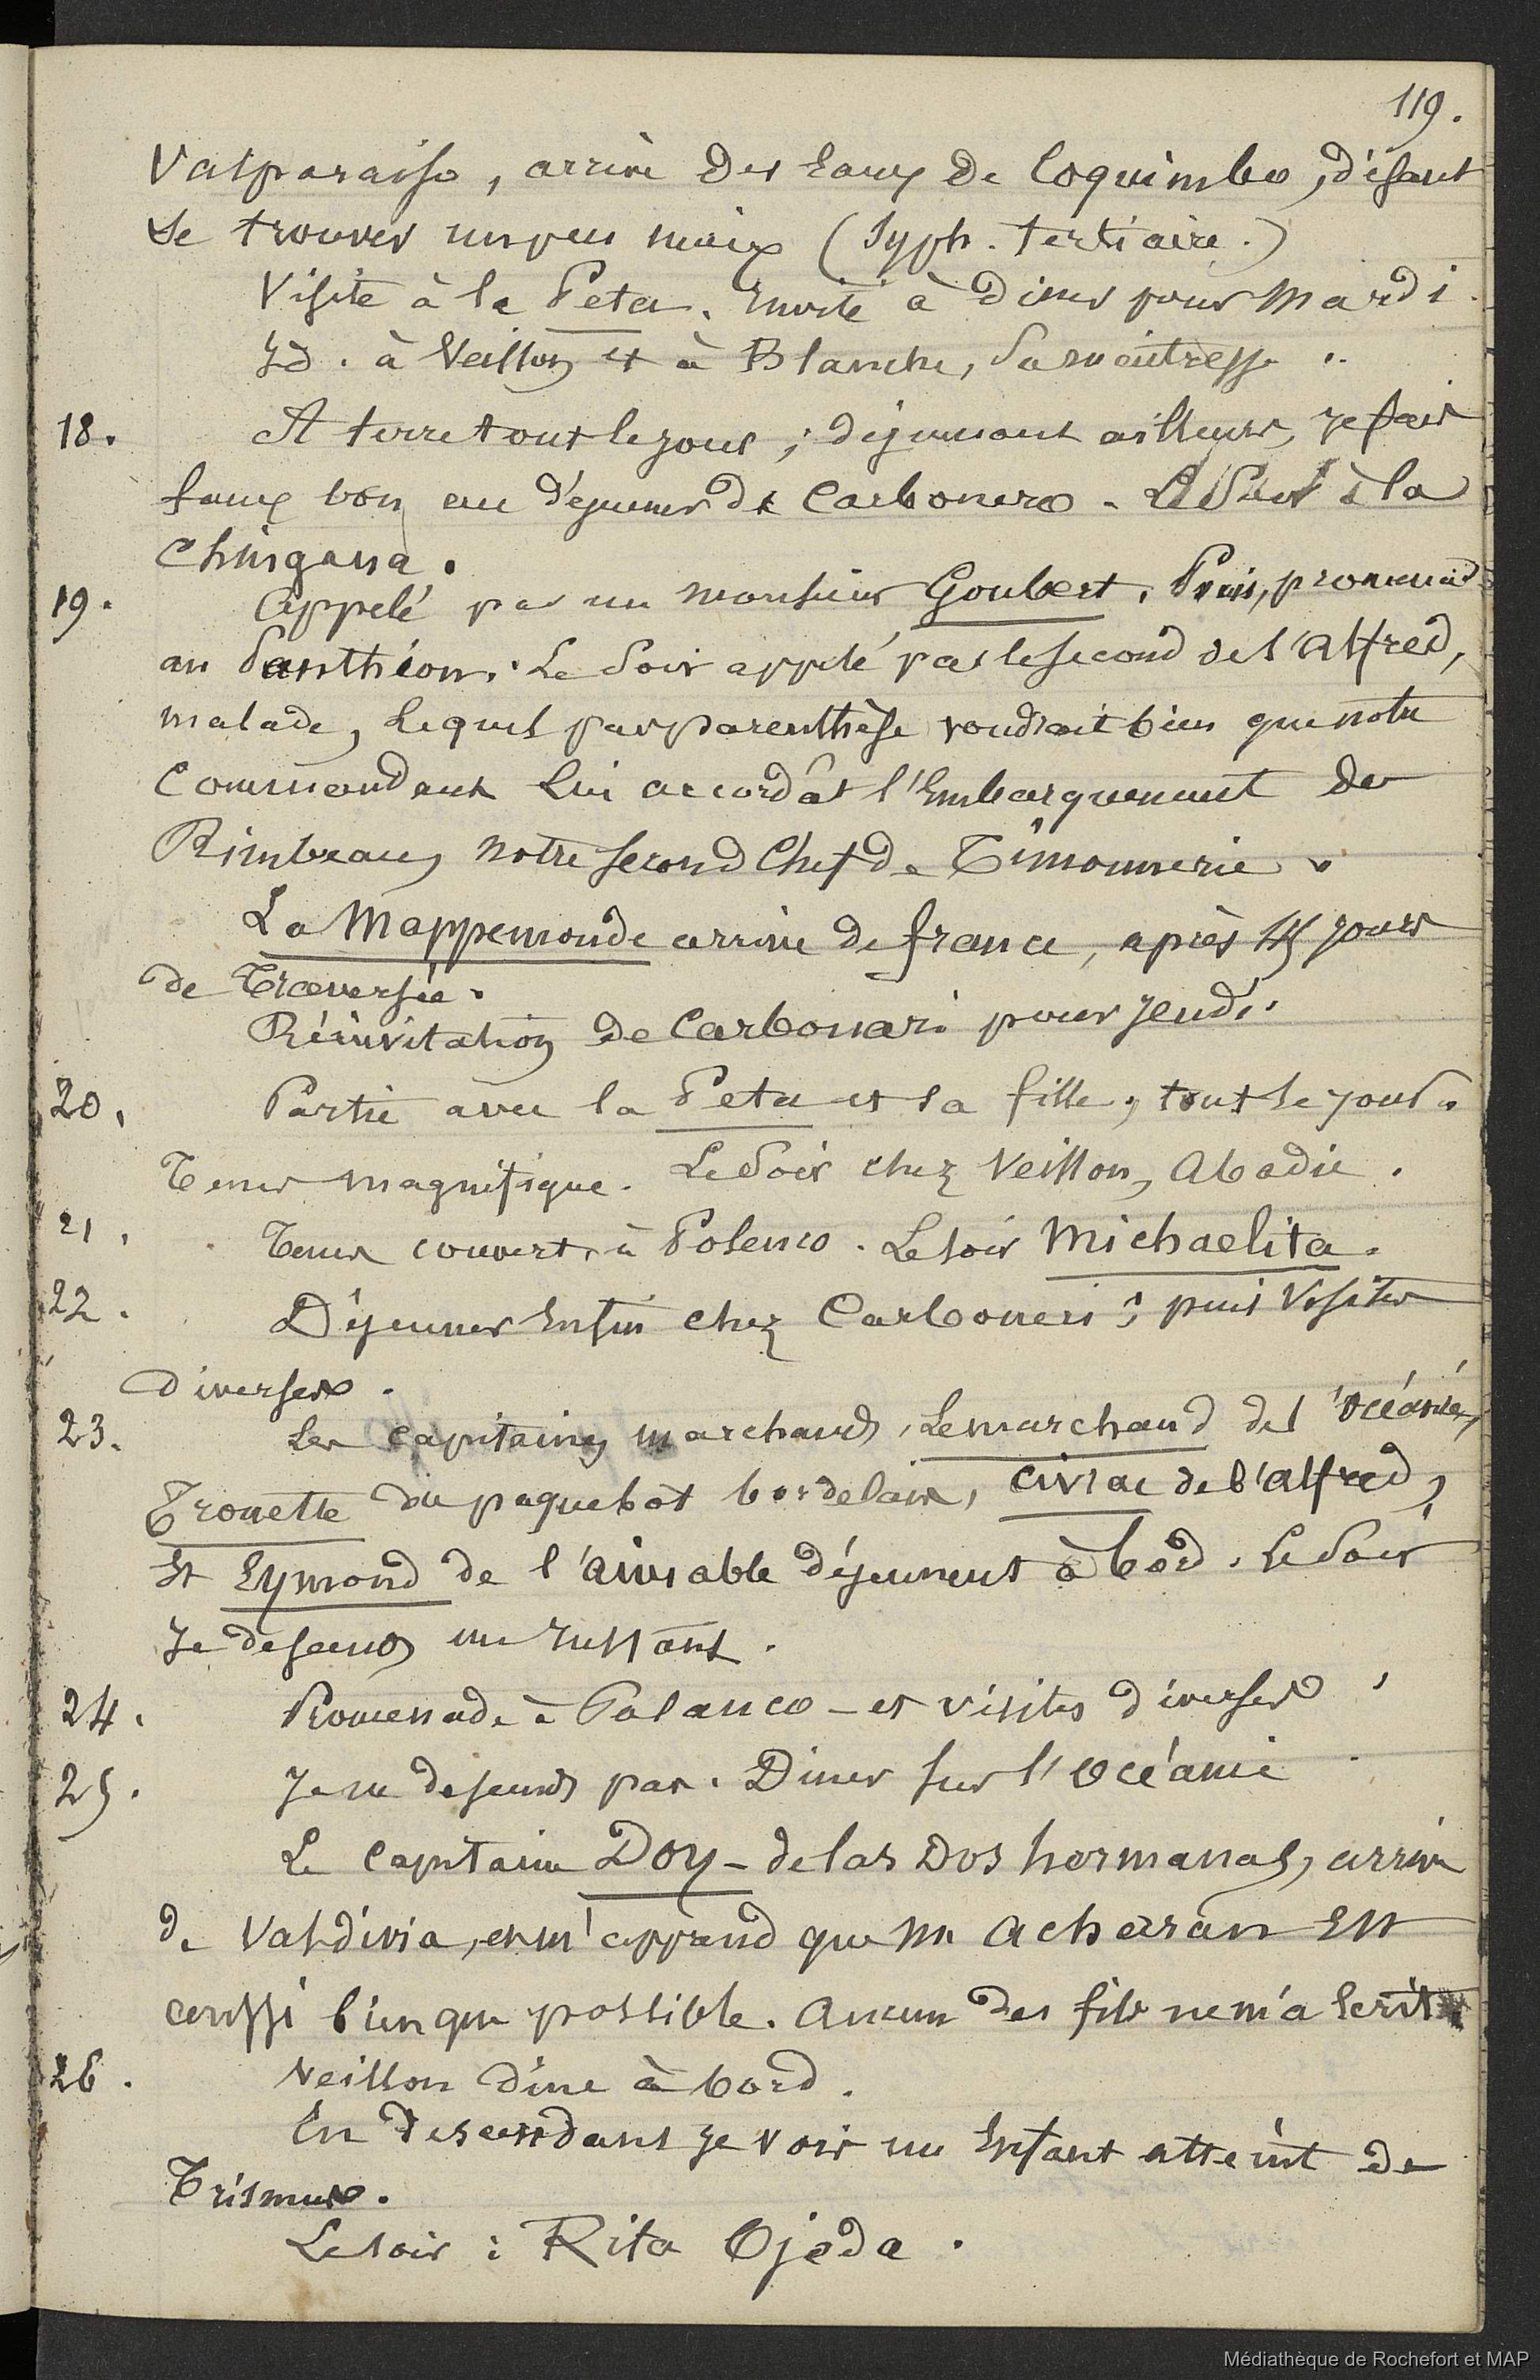 119.
Valparaiso, arrive des Eaux de Coquimbo, disant
se trouver un peu mieux (Syph. tertiaire.)
Visite à la Peta. Invité à diner pour Mardi.
Id. à Veillon et à Blanche, sa maitresse.
18. A terre tout le jour ; déjeunant ailleurs, je fais
faux bon au déjeuner de Carbonero. Le Soir à la
Chingana.
19. Appelé par un monsieur Goubert. Puis, promenade
au Panthéon. Le Soir appelé par le second de l'Alfred,
malade, lequel par parenthèse voudrait bien que notre
Commandant lui accordât l'Embarquement de
Rimbeau, notre second Chef de Timonnerie.
La Mappemonde arrive de france, après jours
de Traversée.
Réinvitation de Carbonari pour Jeudi.
20. Partie avec la Peta et sa fille, tout le jour.
Tems magnifique. Le Soir chez Veillon, Abadie.
21. Tems couvert, à Polenco. Le soir Michaelita.
22. Déjeuner Enfin chez Carboneri ; puis Visites
diverses.
23. Les Capitaines marchands, Lemarchand de l'Océanie,
Trouette du paquebot bordelais, Civrac de l'Alfred,
Et Eymond de l'aimable déjeunent à bord. Le Soir
Je descends un instant.
24. Promenade à Palanco - et visites diverses.
25. Je ne descends pas. Diner sur l'Océanie
Le Capitaine Doy - de las Dos hermanas, arrive
de Valdivia, et m'apprend que Mr Acharan Est
aussi bien que possible. Aucun des fils ne m'a Ecrit.
26. Veillon dine à bord.
En descendant je vois un Enfant atteint de
Trismus.
Le soir : Rita Ojeda.
Médiathèque de Rochefort et MAP